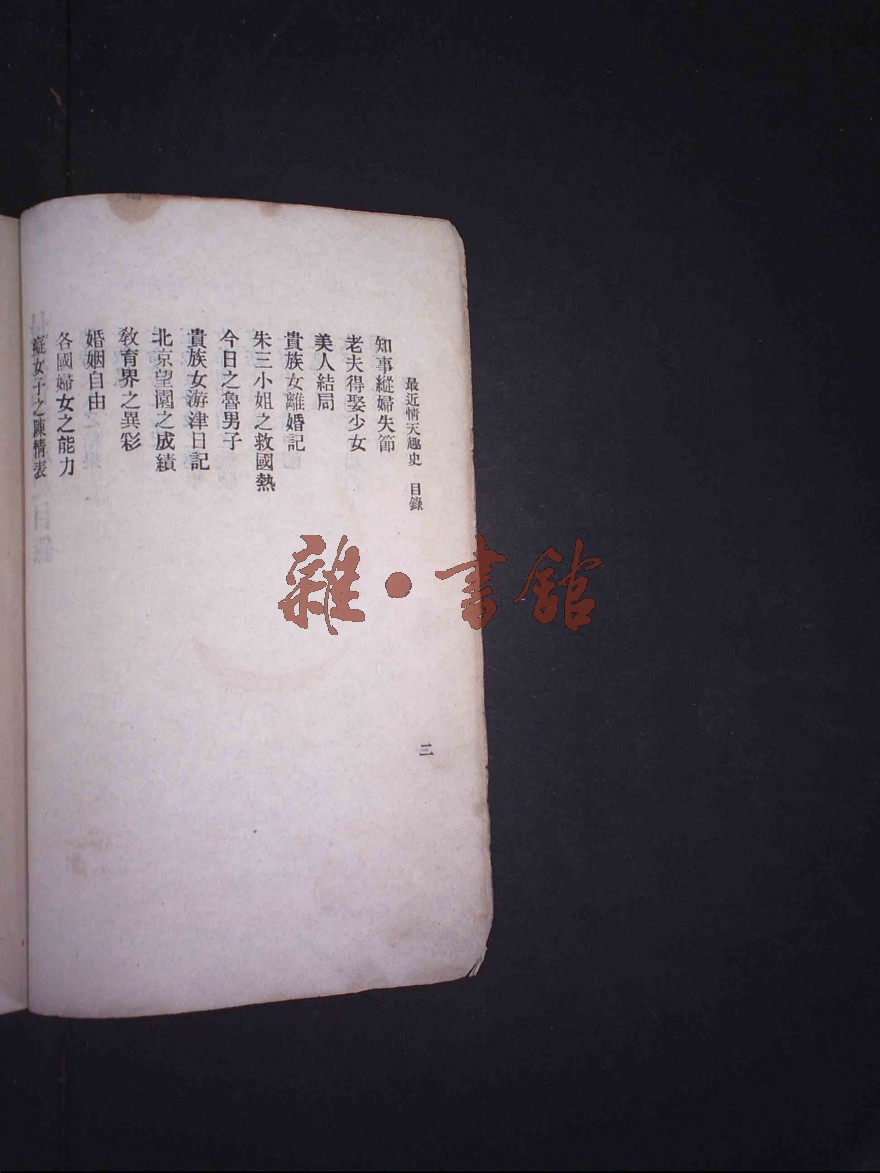 最近情天趣史　目錄
知事縱婦失節
老夫得娶少女
美人結局
貴族女離婚記
朱三小姐之救國熱
今日之魯男子
貴族女游津日記
北京望園之成績
教育界之異彩
婚姻自由
各國婦女之能力
女子之陳情表
三
雜·書館